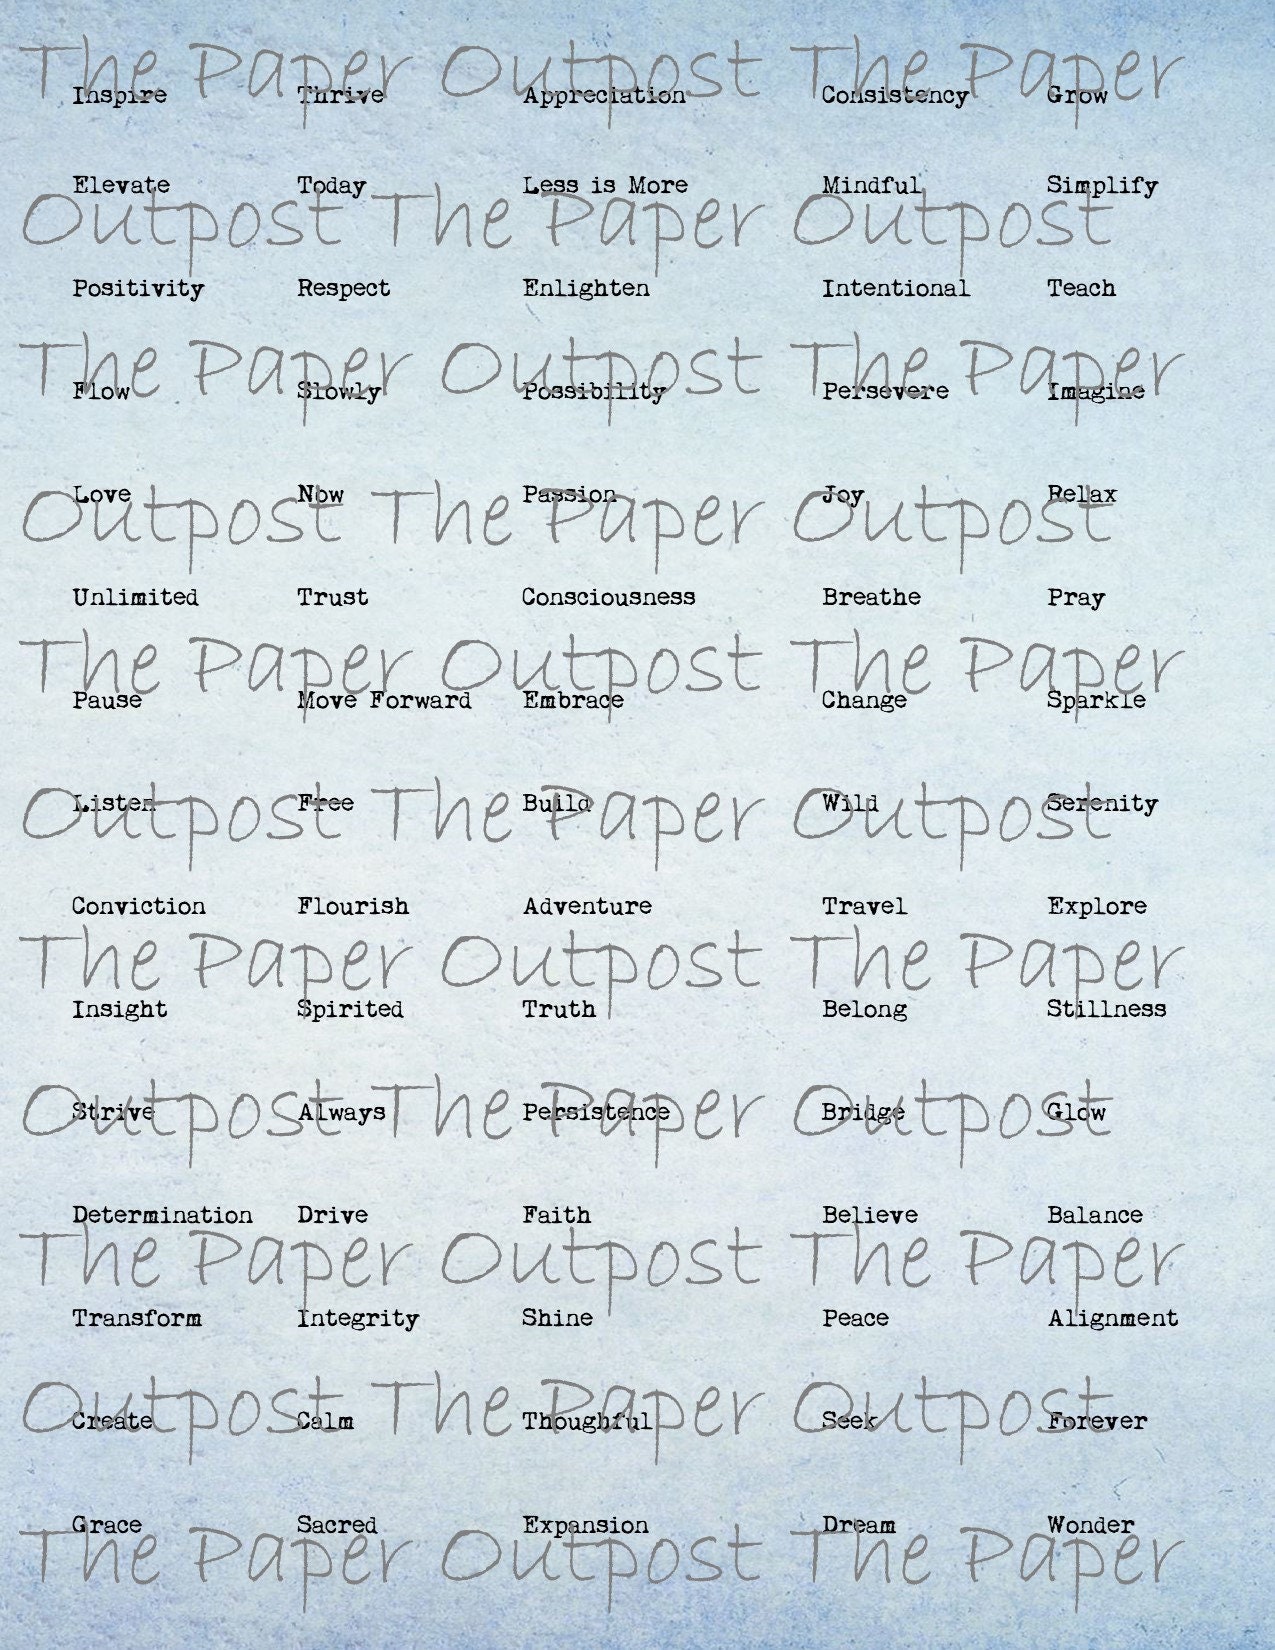 The Paper Outpost The Paper
Inspire Thrive Appreciation Consistency Grow
Elevate Today Less is More Mindful Simplify
Outpost The Paper Outpost
Positivity Respect Enlighten Intentional Teach
The Paper Outpost The Paper
Flow Slowly Possibility Persevere Imagine
Love Now Passion Joy Relax
Outpost The Paper Outpost
Unlimited Trust Consciousness Breathe Pray
The Paper Outpost The Paper
Pause Move Forward Embrace Change Sparkle
Listen Free Build Wild Serenity
Outpost The Paper Outpost
Conviction Flourish Adventure Travel Explore
The Paper Outpost The Paper
Insight Spirited Truth Belong Stillness
Outpost The Paper Outpost
Strive Always Persistence Bridge Glow
Determination Drive Faith Believe Balance
The Paper Outpost The Paper
Transform Integrity Shine Peace Alignment
Outpost The Paper Outpost
Create Calm Thoughful Seek Forever
Grace Sacred Expansion Dream Wonder
The Paper Outpost The Paper